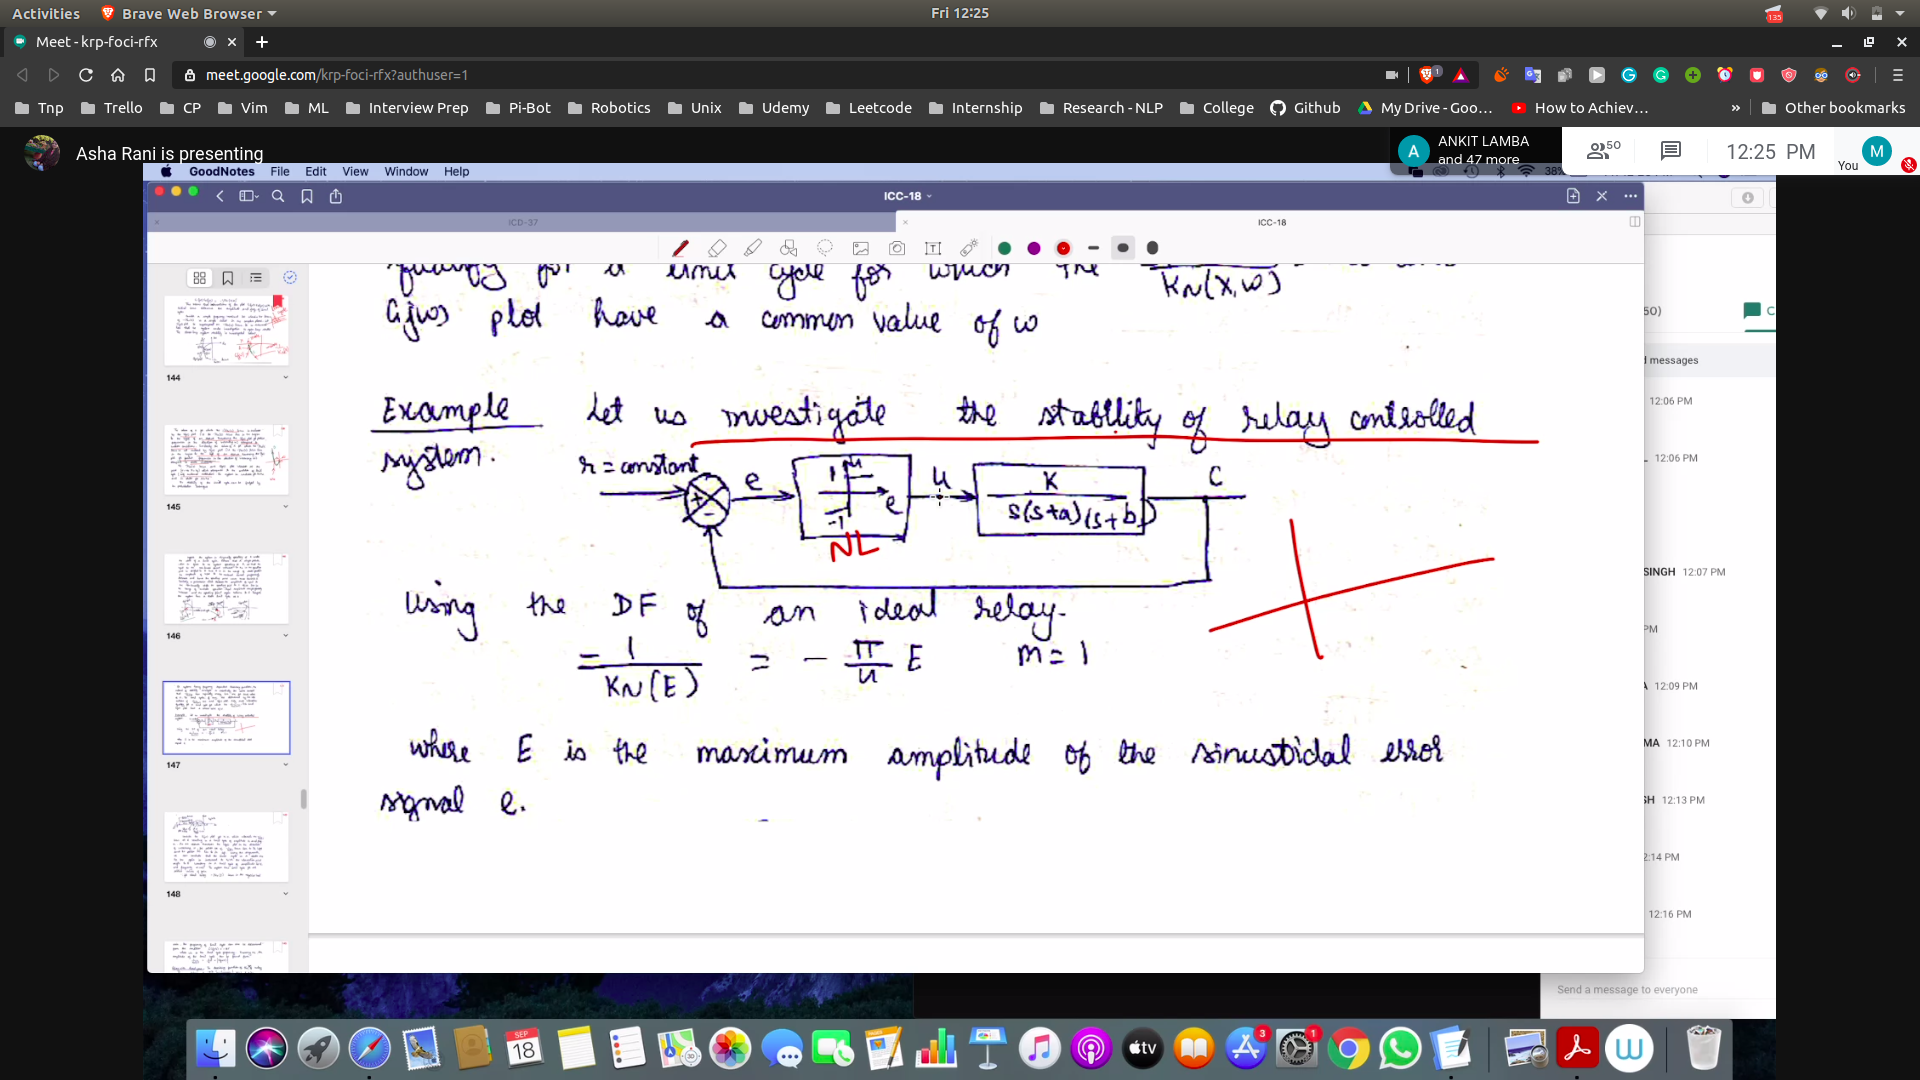 Activities
Brave Web Browser
Fri 12:25
135
Meet - krp-foci-rfx
meet.google.com/krp-foci-rfx?authuser=1
Tnp Trello CP Vim ML Interview Prep Pi-Bot Robotics Unix Udemy Leetcode Internship Research - NLP College Github My Drive - Goo… How to Achiev… » Other bookmarks
Asha Rani is presenting
A ANKIT LAMBA
and 47 more
50
12:25 PM
You M
GoodNotes File Edit View Window Help
38%
ICC-18
ICD-37
ICC-18
limit cycle for which the
KN(X,ω)
G(jω) plot have a common value of ω
Example Let us investigate the stability of relay controlled
system.
r = constant
+
-
e
1
u
e
-1
NL
u
K
s(s+a)(s+b)
C
Using the DF of an ideal relay.
- 1 / KN(E) = - π/4 E m = 1
where E is the maximum amplitude of the sinustidal error
signal e.
144
145
146
147
148
50)
C
d messages
12:06 PM
12:06 PM
SINGH 12:07 PM
PM
A 12:09 PM
MA 12:10 PM
SH 12:13 PM
2:14 PM
12:16 PM
Send a message to everyone
SEP
18
tv
3
1